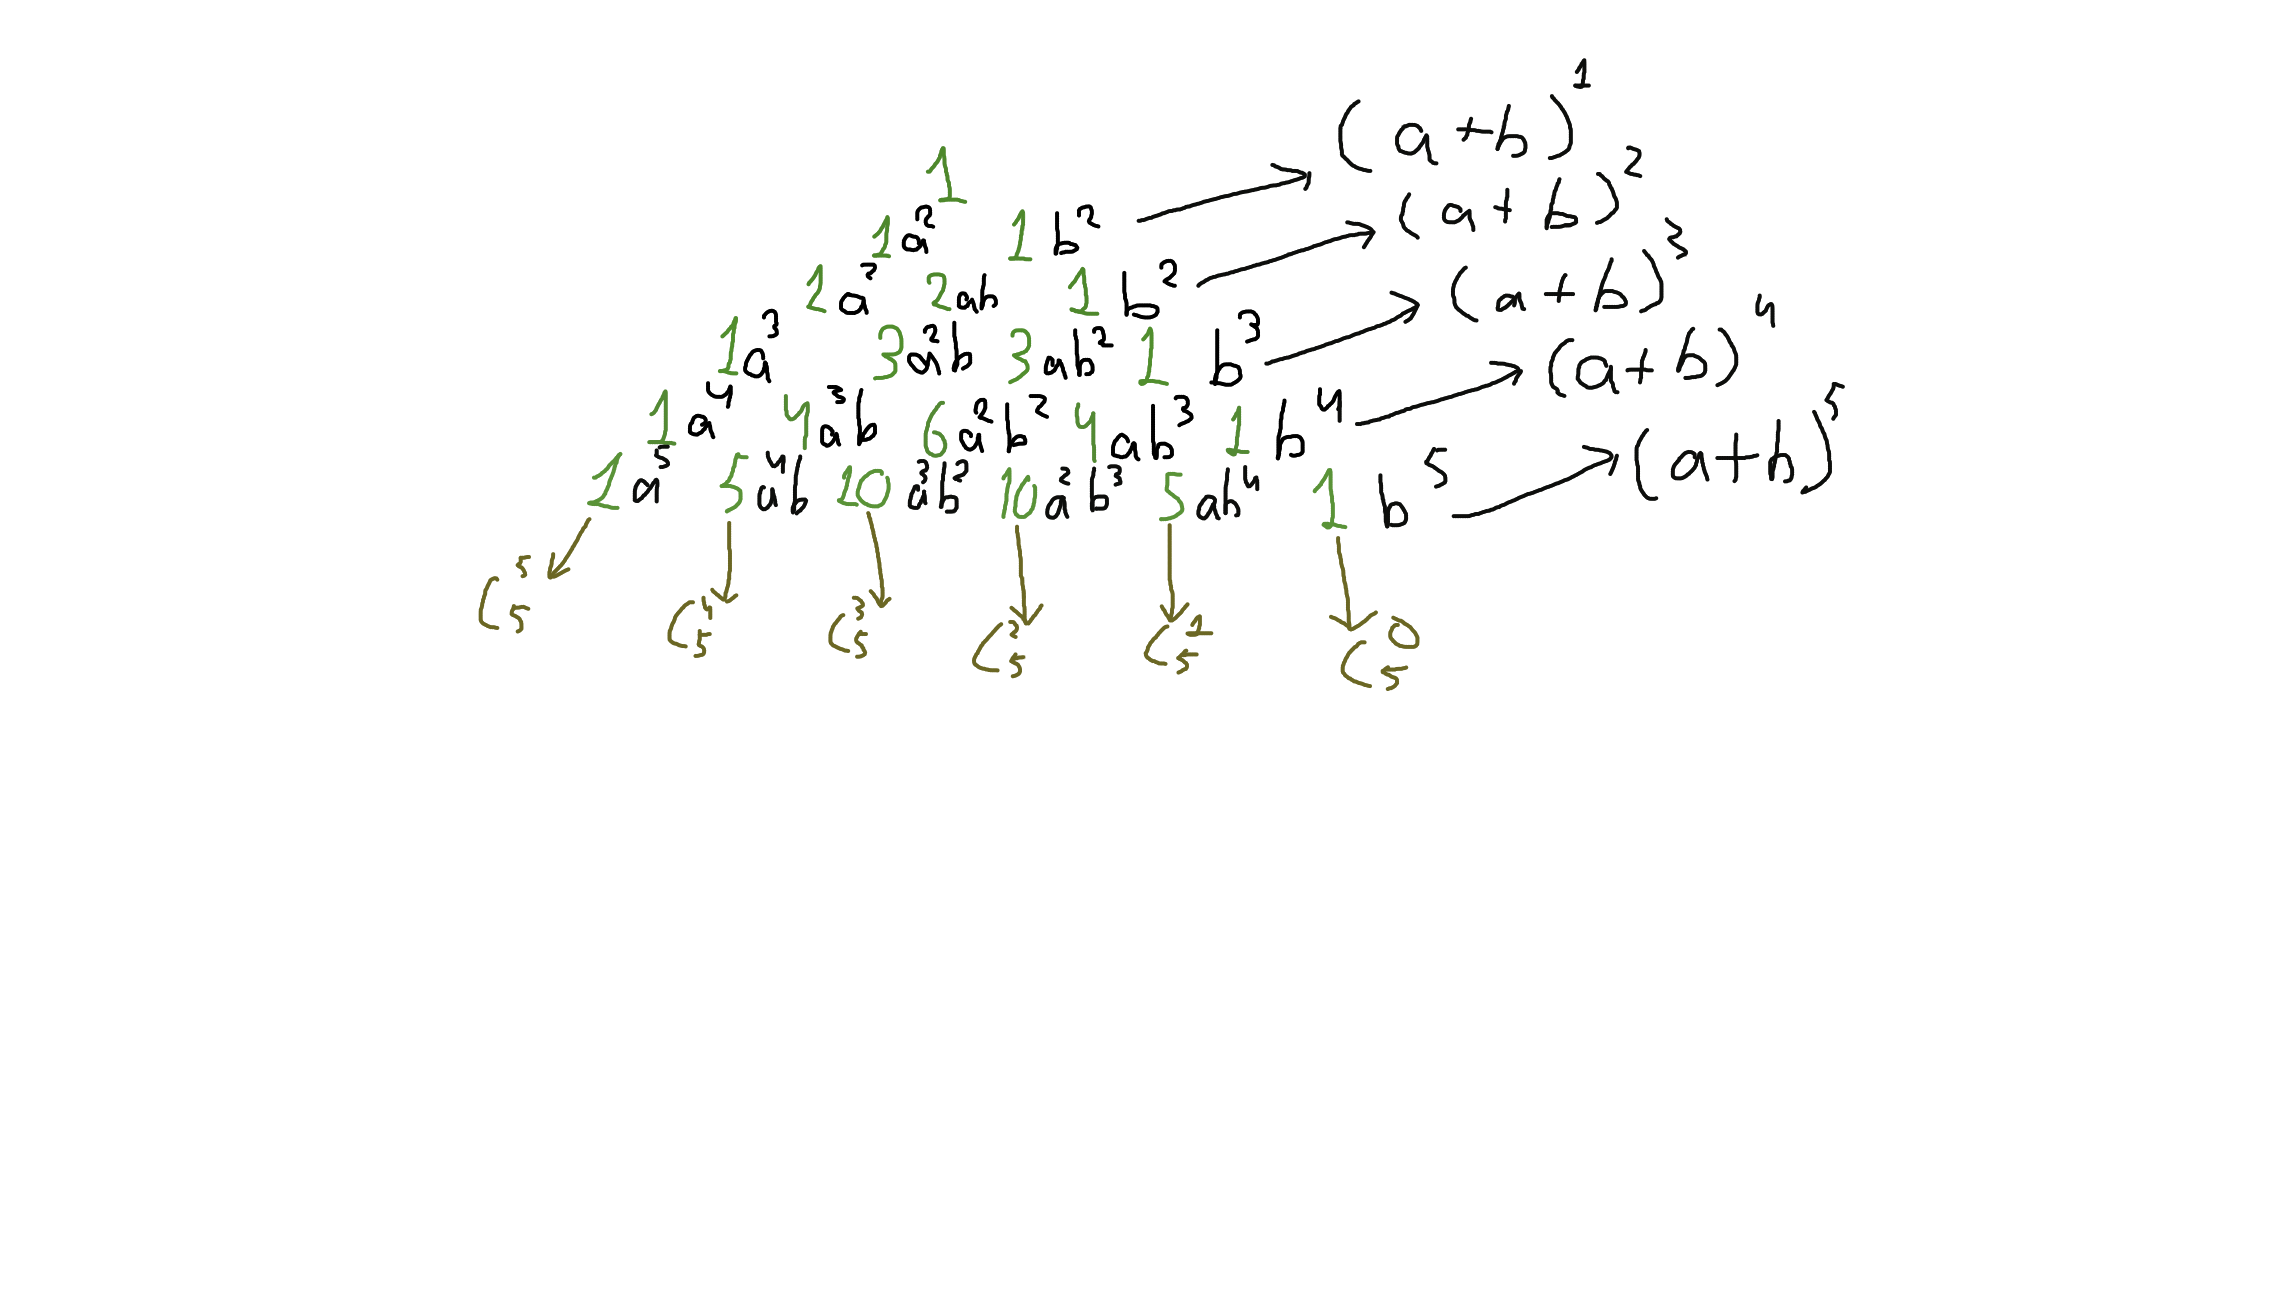 1
1a² 1b² → (a+b)¹
1a² 2ab 1b² → (a+b)²
1a³ 3a²b 3ab² 1b³ → (a+b)³
1a⁴ 4a³b 6a²b² 4ab³ 1b⁴ → (a+b)⁴
1a⁵ 5a⁴b 10a³b² 10a²b³ 5ab⁴ 1b⁵ → (a+b)⁵
C₅⁵ C₅⁴ C₅³ C₅² C₅¹ C₅⁰